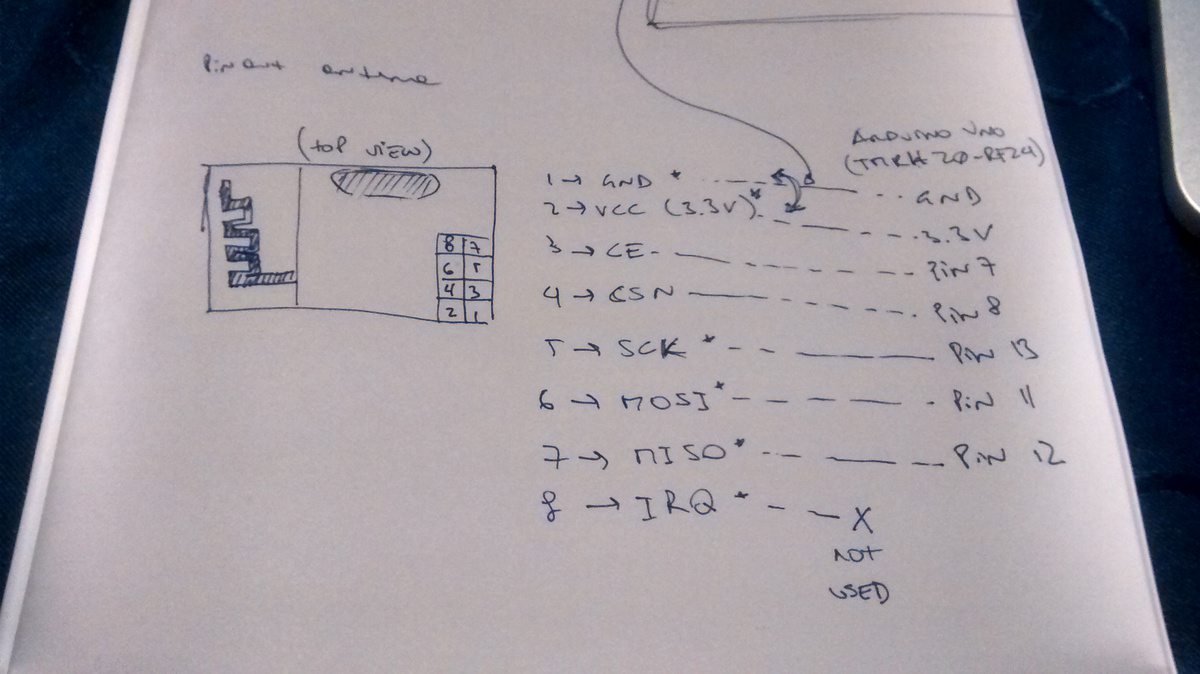 Pin out antenna
(top view)
8 7
6 5
4 3
2 1
ARDUINO UNO
(TMRH20-RF24)
1 → GND * GND
2 → VCC (3.3V)* 3.3V
3 → CE Pin 7
4 → CSN Pin 8
5 → SCK * Pin 13
6 → MOSI * Pin 11
7 → MISO * Pin 12
8 → IRQ * X
NOT
USED